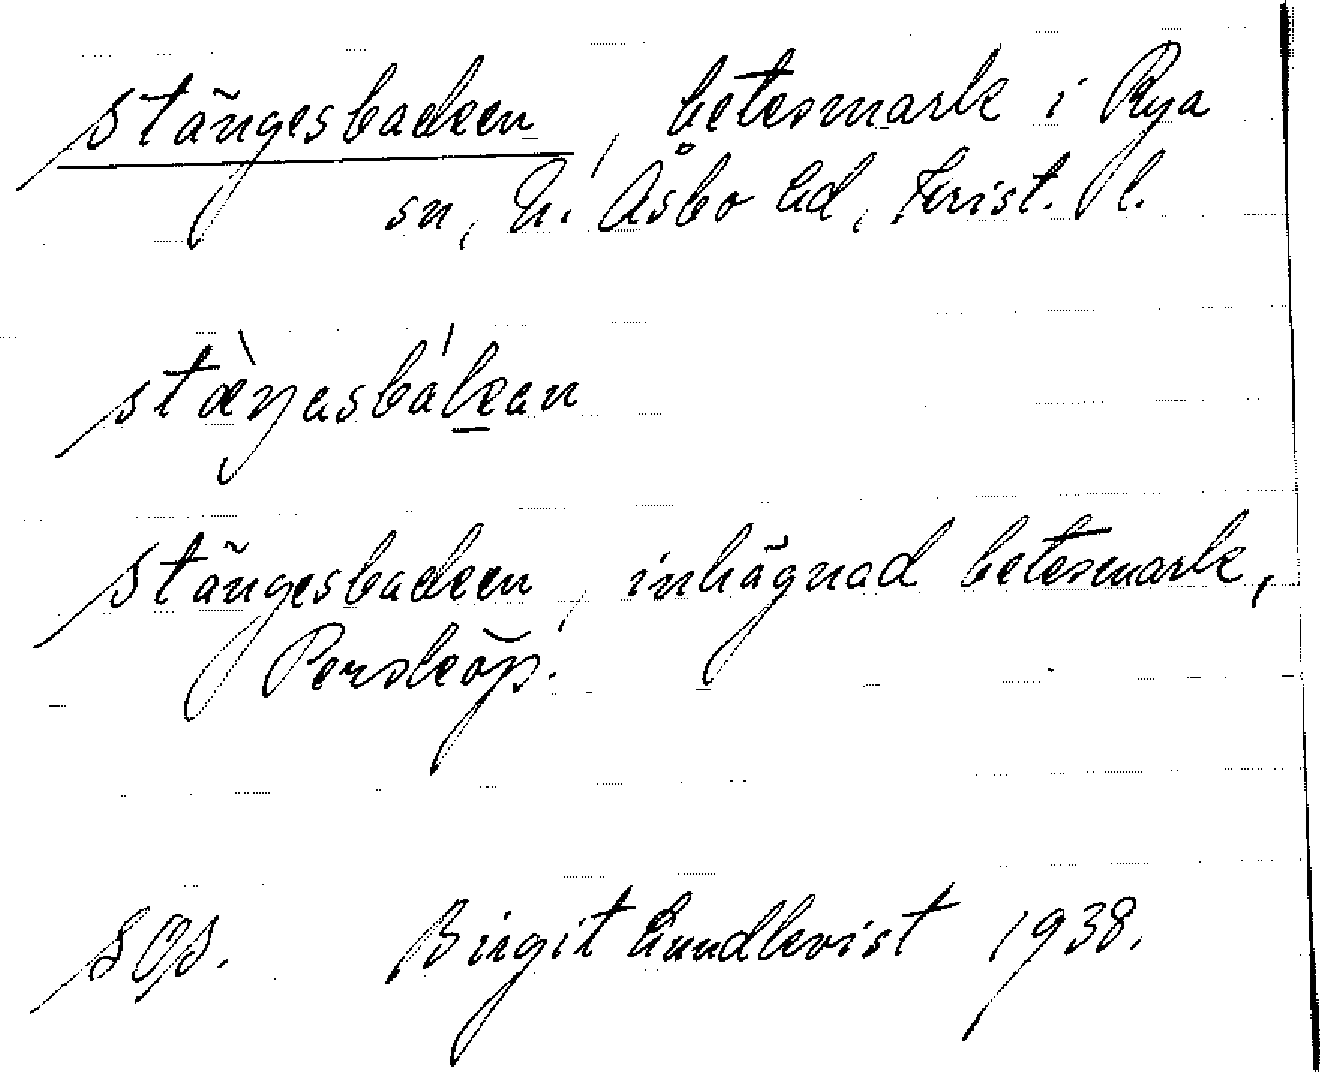 Stängesbacken, betesmark i Rya
sn, N. Åsbo hd, Krist. l.
stæ̀ŋasbákan
Stängesbacken, inhägnad betesmark,
Perstorp.
SOS. Birgit Lundkvist 1938.